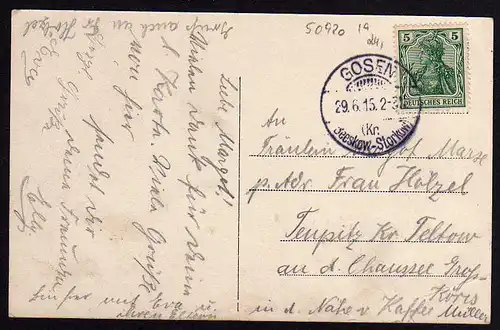 50920 19
24,
5 5
DEUTSCHES REICH
GOSEN
29.6.15. 2-3
(Kr.
Beeskow-Storkow)
An
Fräulein Margot Marse
p. Adr Frau Hölzel
Teupitz Kr. Teltow
an d. Chaussee Groß-
Köris
in d. Nähe v. Kaffee Müller
Liebe Margot!
Vielen Dank für Deine
l. Karte. Viele Grüße
von hier
sendet Dir
Deine Freundin
Elly
auch an
Eva
mit Eva u
ihren Eltern